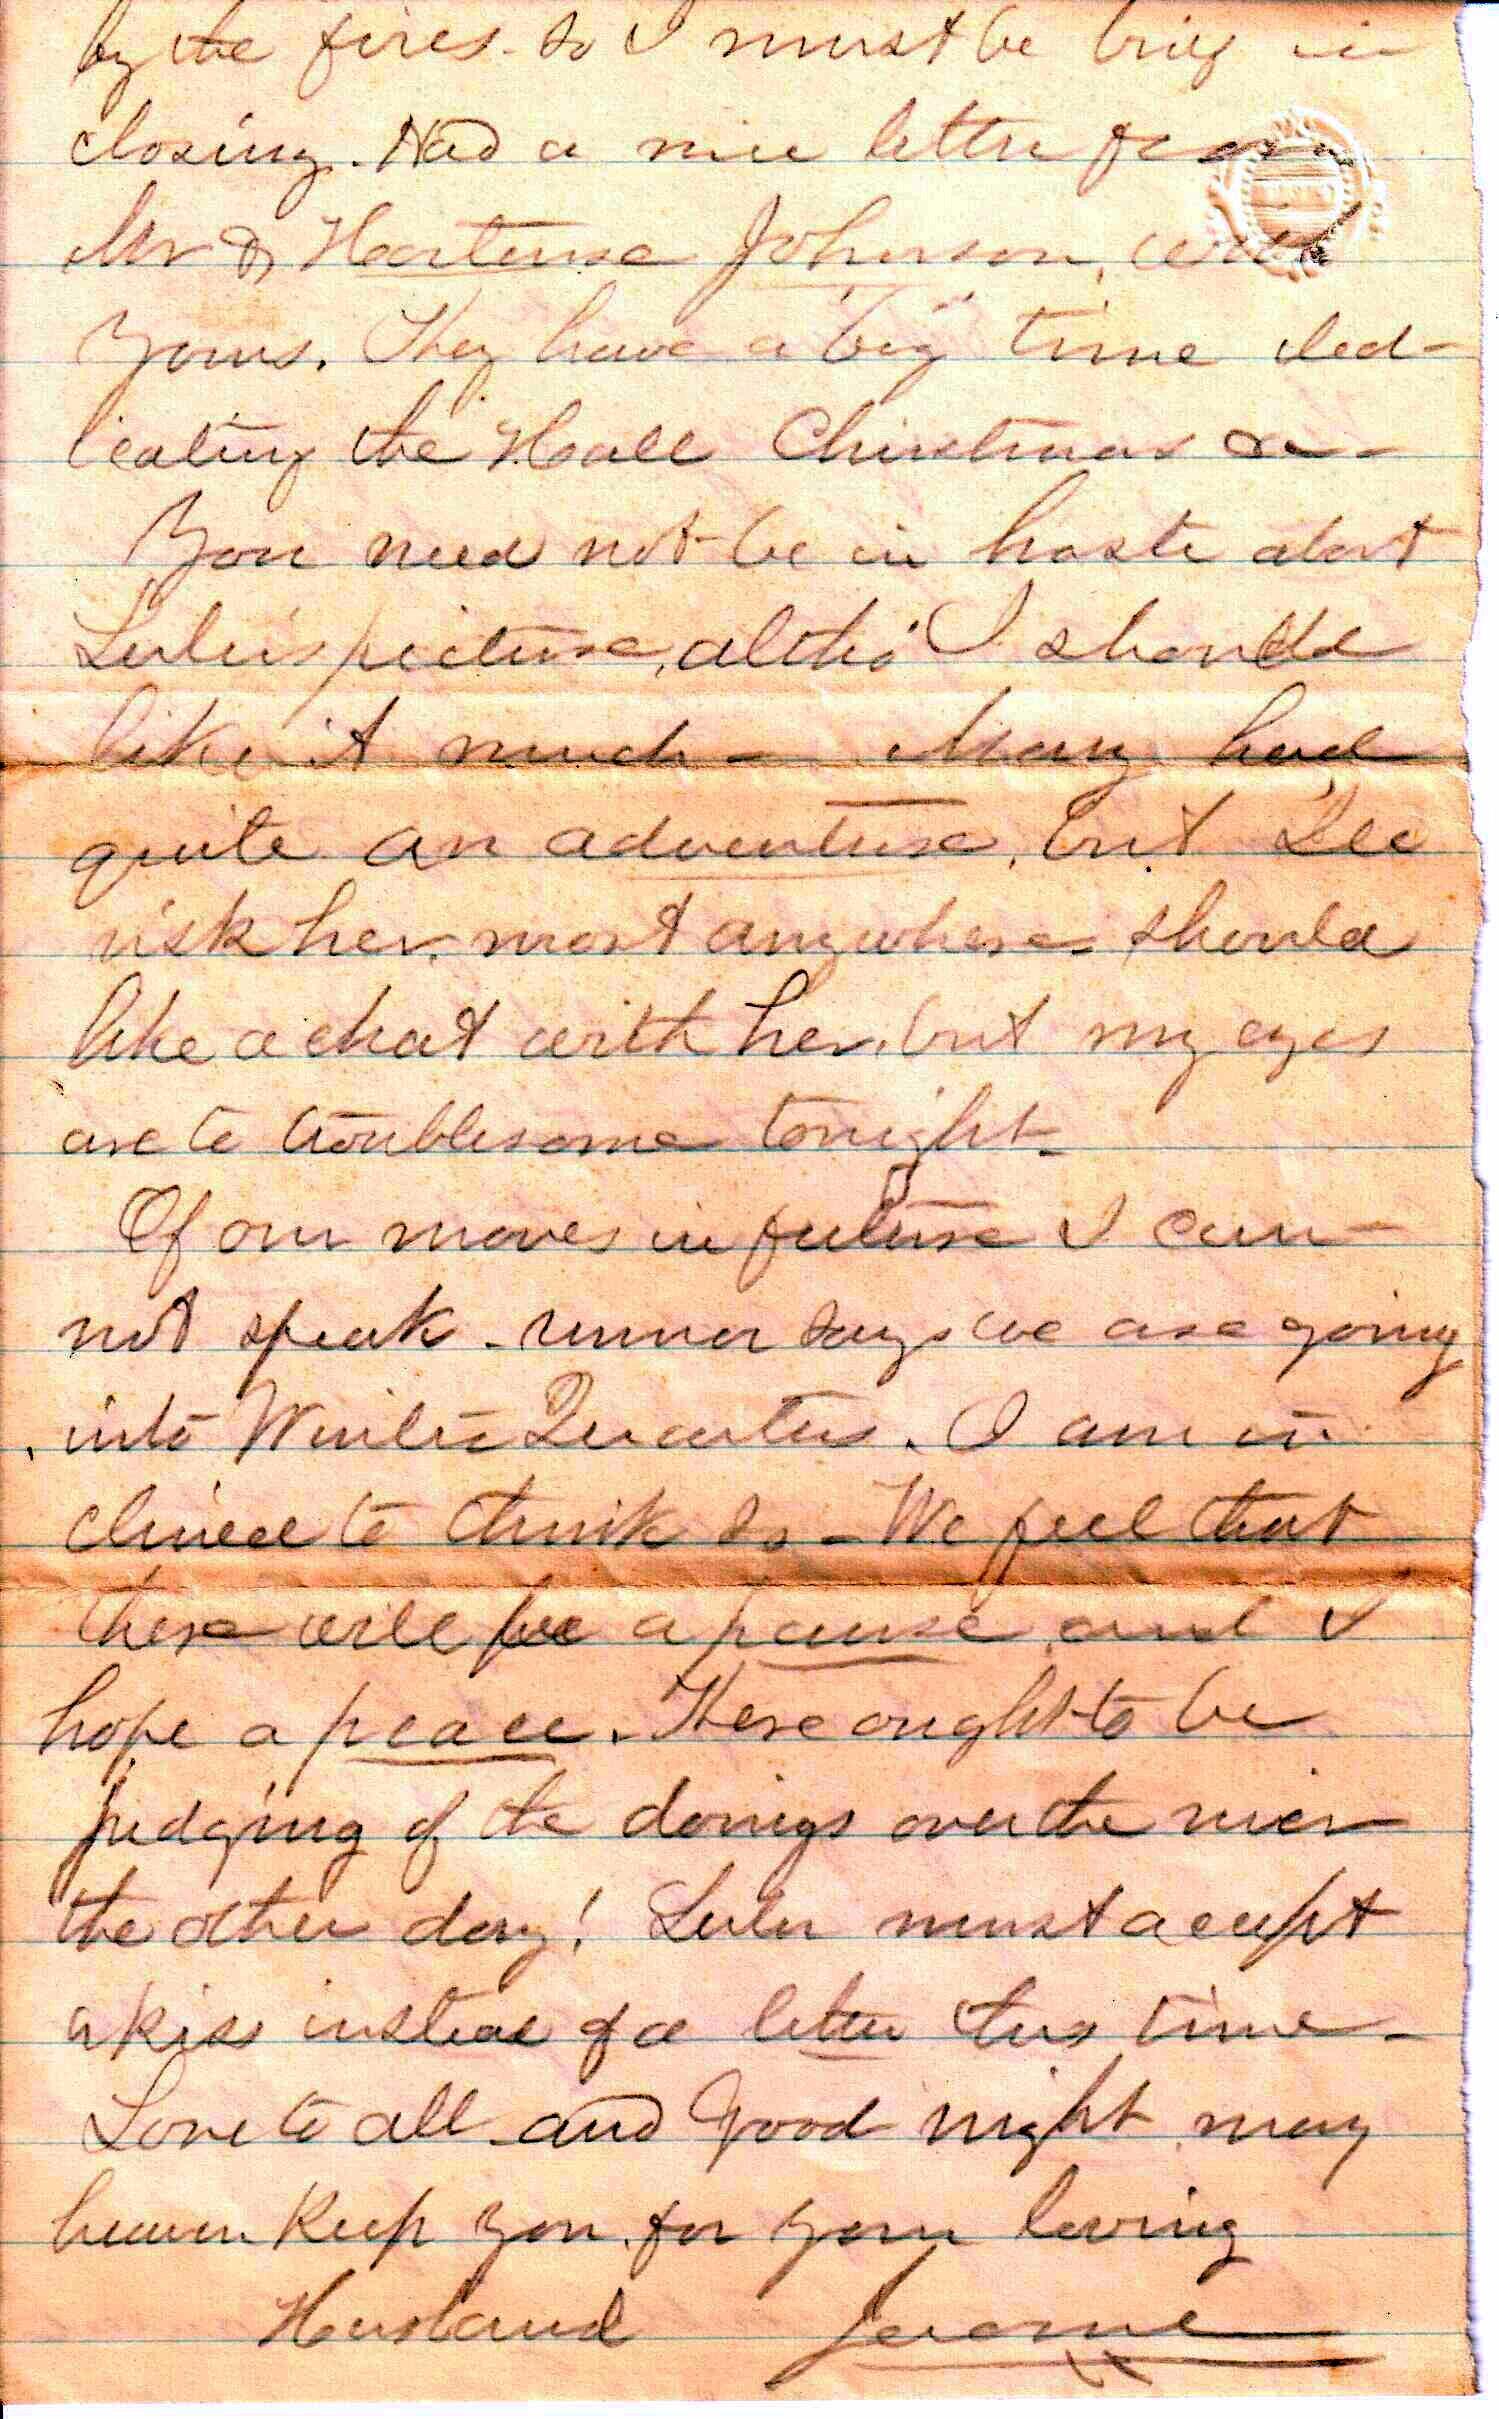 by the fires - so I must be brief in
closing. Had a nice letter from
Mr & Hortense Johnson, with
yours. They have a "big" time ded-
icating the Hall Christmas &c -
You need not be in haste about
Lulu's picture, altho' I should
like it much - Mary had
quite an adventure, but I'le
risk her most anywhere - should
like a chat with her, but my eyes
are to troublesome tonight -
Of our moves in future I can-
not speak - rumor says we are going
into Winter Quarters. I am in
clined to think so - We feel that
there will be a pause and I
hope a peace. There ought to be
judging of the doings over the river
the other day! Lulu must accept
a kiss instead of a letter this time -
Love to all and Good night may
heaven keep you for your loving
Husband Jerome